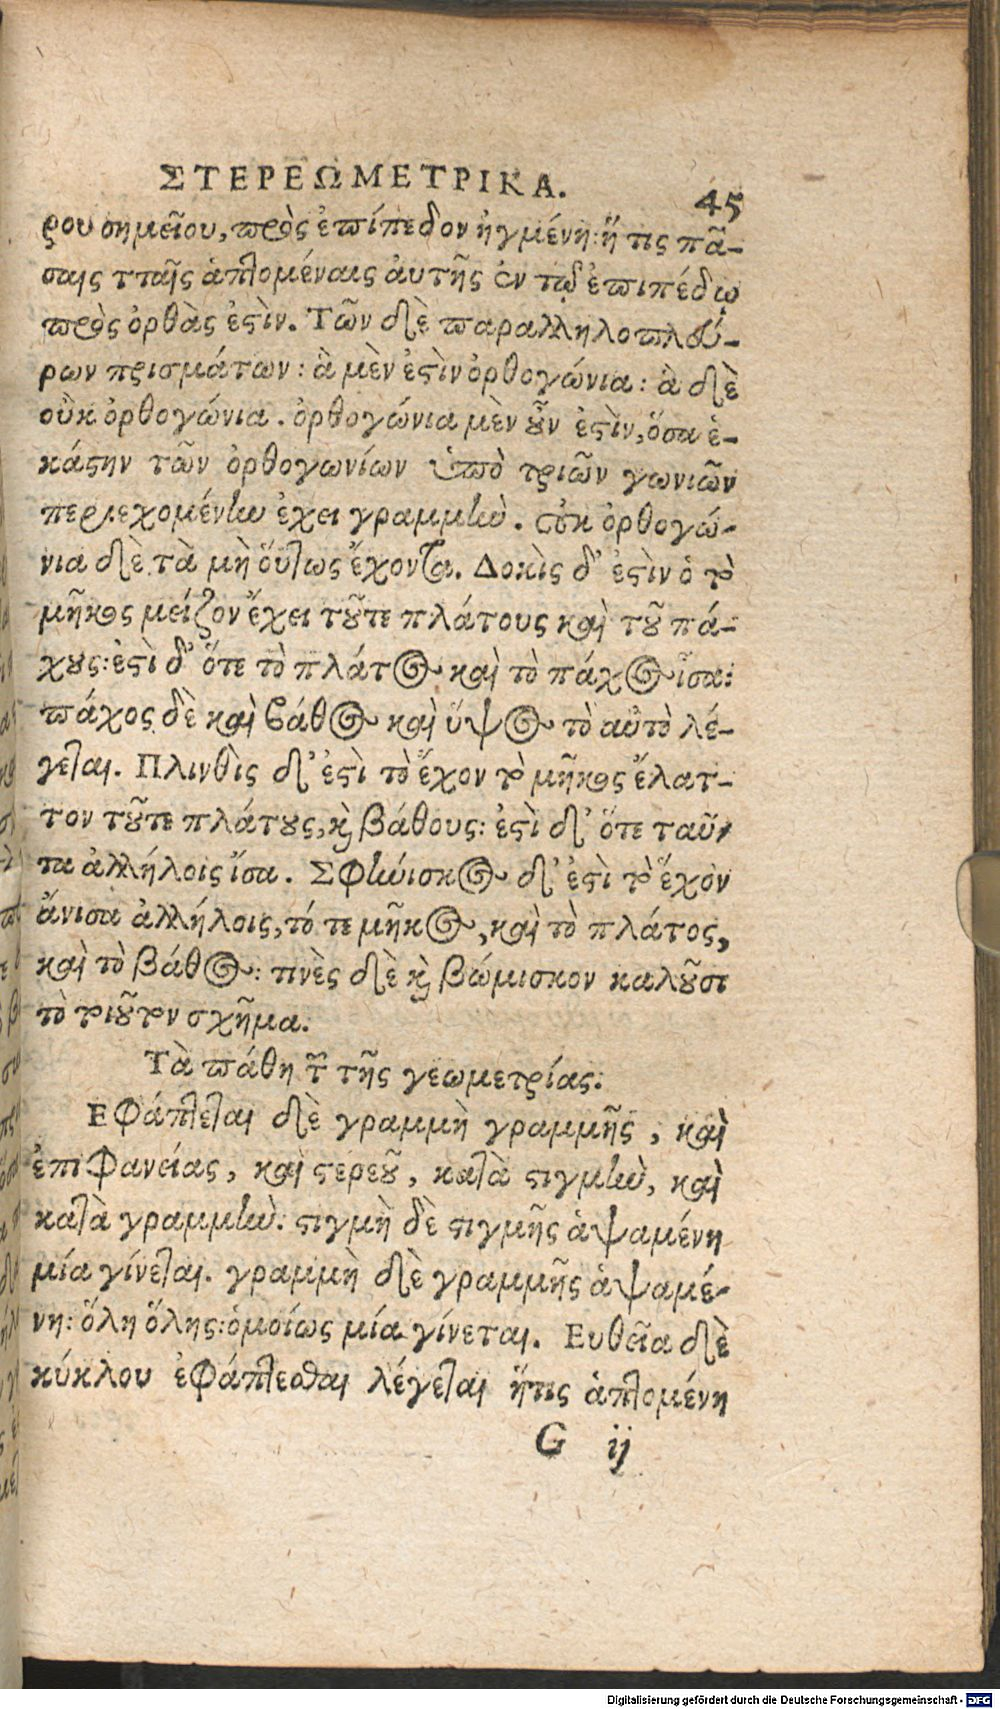 ΣΤΕΡΕΩΜΕΤΡΙΚΑ. 45
ρου σημεῖου, πρὸς ἐπίπεδον ἠγμένη: ἥ τις πᾶ-
σαις τ ταῖς ἁπτομέναις ἀυτῆς ἐν τῷ ἐπιπέδῳ
πρὸς ὀρθὰς ἐστὶν. Τῶν δὲ παραλληλοπλεύ-
ρων πρισμάτων: ἃ μὲν ἐστὶν ὀρθογώνια: ἃ δὲ
οὐκ ὀρθογώνια. ὀρθογώνια μὲν οὖν ἐστὶν, ὅσα ἑ-
κάστην τῶν ὀρθογωνίων ὑπὸ τριῶν γωνιῶν
περιεχομένην ἔχει γραμμὴν. οὐκ ὀρθογώ-
νια δὲ τὰ μὴ οὕτως ἔχοντα. Δοκὶς δ' ἐστὶν ὁ τὸ
μῆκος μεῖζον ἔχει τοῦτε πλάτους καὶ τοῦ πά-
χους: ἐστὶ δ' ὅτε τὸ πλάτος καὶ τὸ πάχος ἶσα:
πάχος δὲ καὶ βάθος καὶ ὕψος τὸ αὐτὸ λέ-
γεται. Πλινθὶς δ' ἐστὶ τὸ ἔχον τὸ μῆκος ἔλατ-
τον τοῦτε πλάτους, καὶ βάθους: ἐστὶ δ' ὅτε ταῦ-
τα ἀλλήλοις ἴσα. Σφηνίσκος δ' ἐστὶ τὸ ἔχον
ἄνισα ἀλλήλοις, τό τε μῆκος, καὶ τὸ πλάτος,
καὶ τὸ βάθος: τινὲς δὲ καὶ βώμισκον καλοῦσι
τὸ τοιοῦτον σχῆμα.
Τὰ πάθη τ͂ τῆς γεωμετρίας:
Εφάπτεται δὲ γραμμὴ γραμμῆς, καὶ
ἐπιφανείας, καὶ στερεοῦ, κατὰ στιγμὴν, καὶ
κατὰ γραμμὴν. στιγμὴ δὲ στιγμῆς ἁψαμένη
μία γίνεται. γραμμὴ δὲ γραμμῆς ἁψαμέ-
νη: ὅλη ὅλης: ὁμοίως μία γίνεται. Ευθεῖα δὲ
κύκλου ἐφάπτεσθαι λέγεται ἥτις ἁπτομένη
G ij
Digitalisierung gefördert durch die Deutsche Forschungsgemeinschaft - DFG